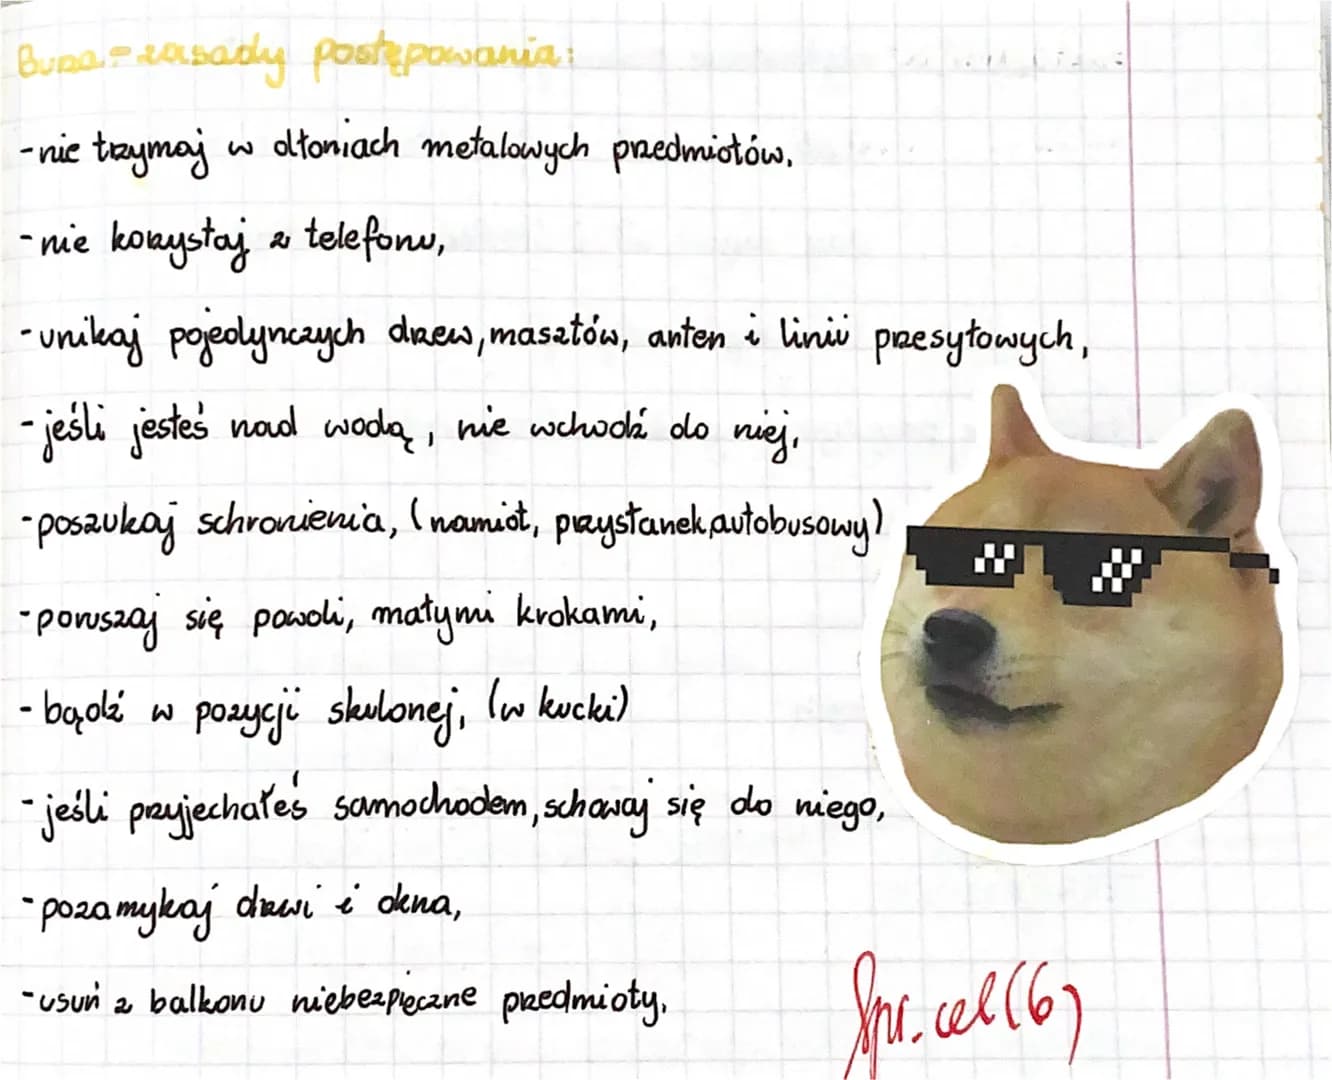 Burza - zasady postępowania:
- nie trzymaj w dłoniach metalowych przedmiotów,
- nie korzystaj z telefonu,
- unikaj pojedynczych drzew, masztów, anten i linii przesyłowych,
- jeśli jesteś nad wodą, nie wchodź do niej,
- poszukaj schronienia, (namiot, przystanek autobusowy)
- poruszaj się powoli, małymi krokami,
- bądź w pozycji skulonej, (w kucki)
- jeśli przyjechałeś samochodem, schowaj się do niego,
- pozamykaj drzwi i okna,
- usuń z balkonu niebezpieczne przedmioty,
Spr. cel (6)